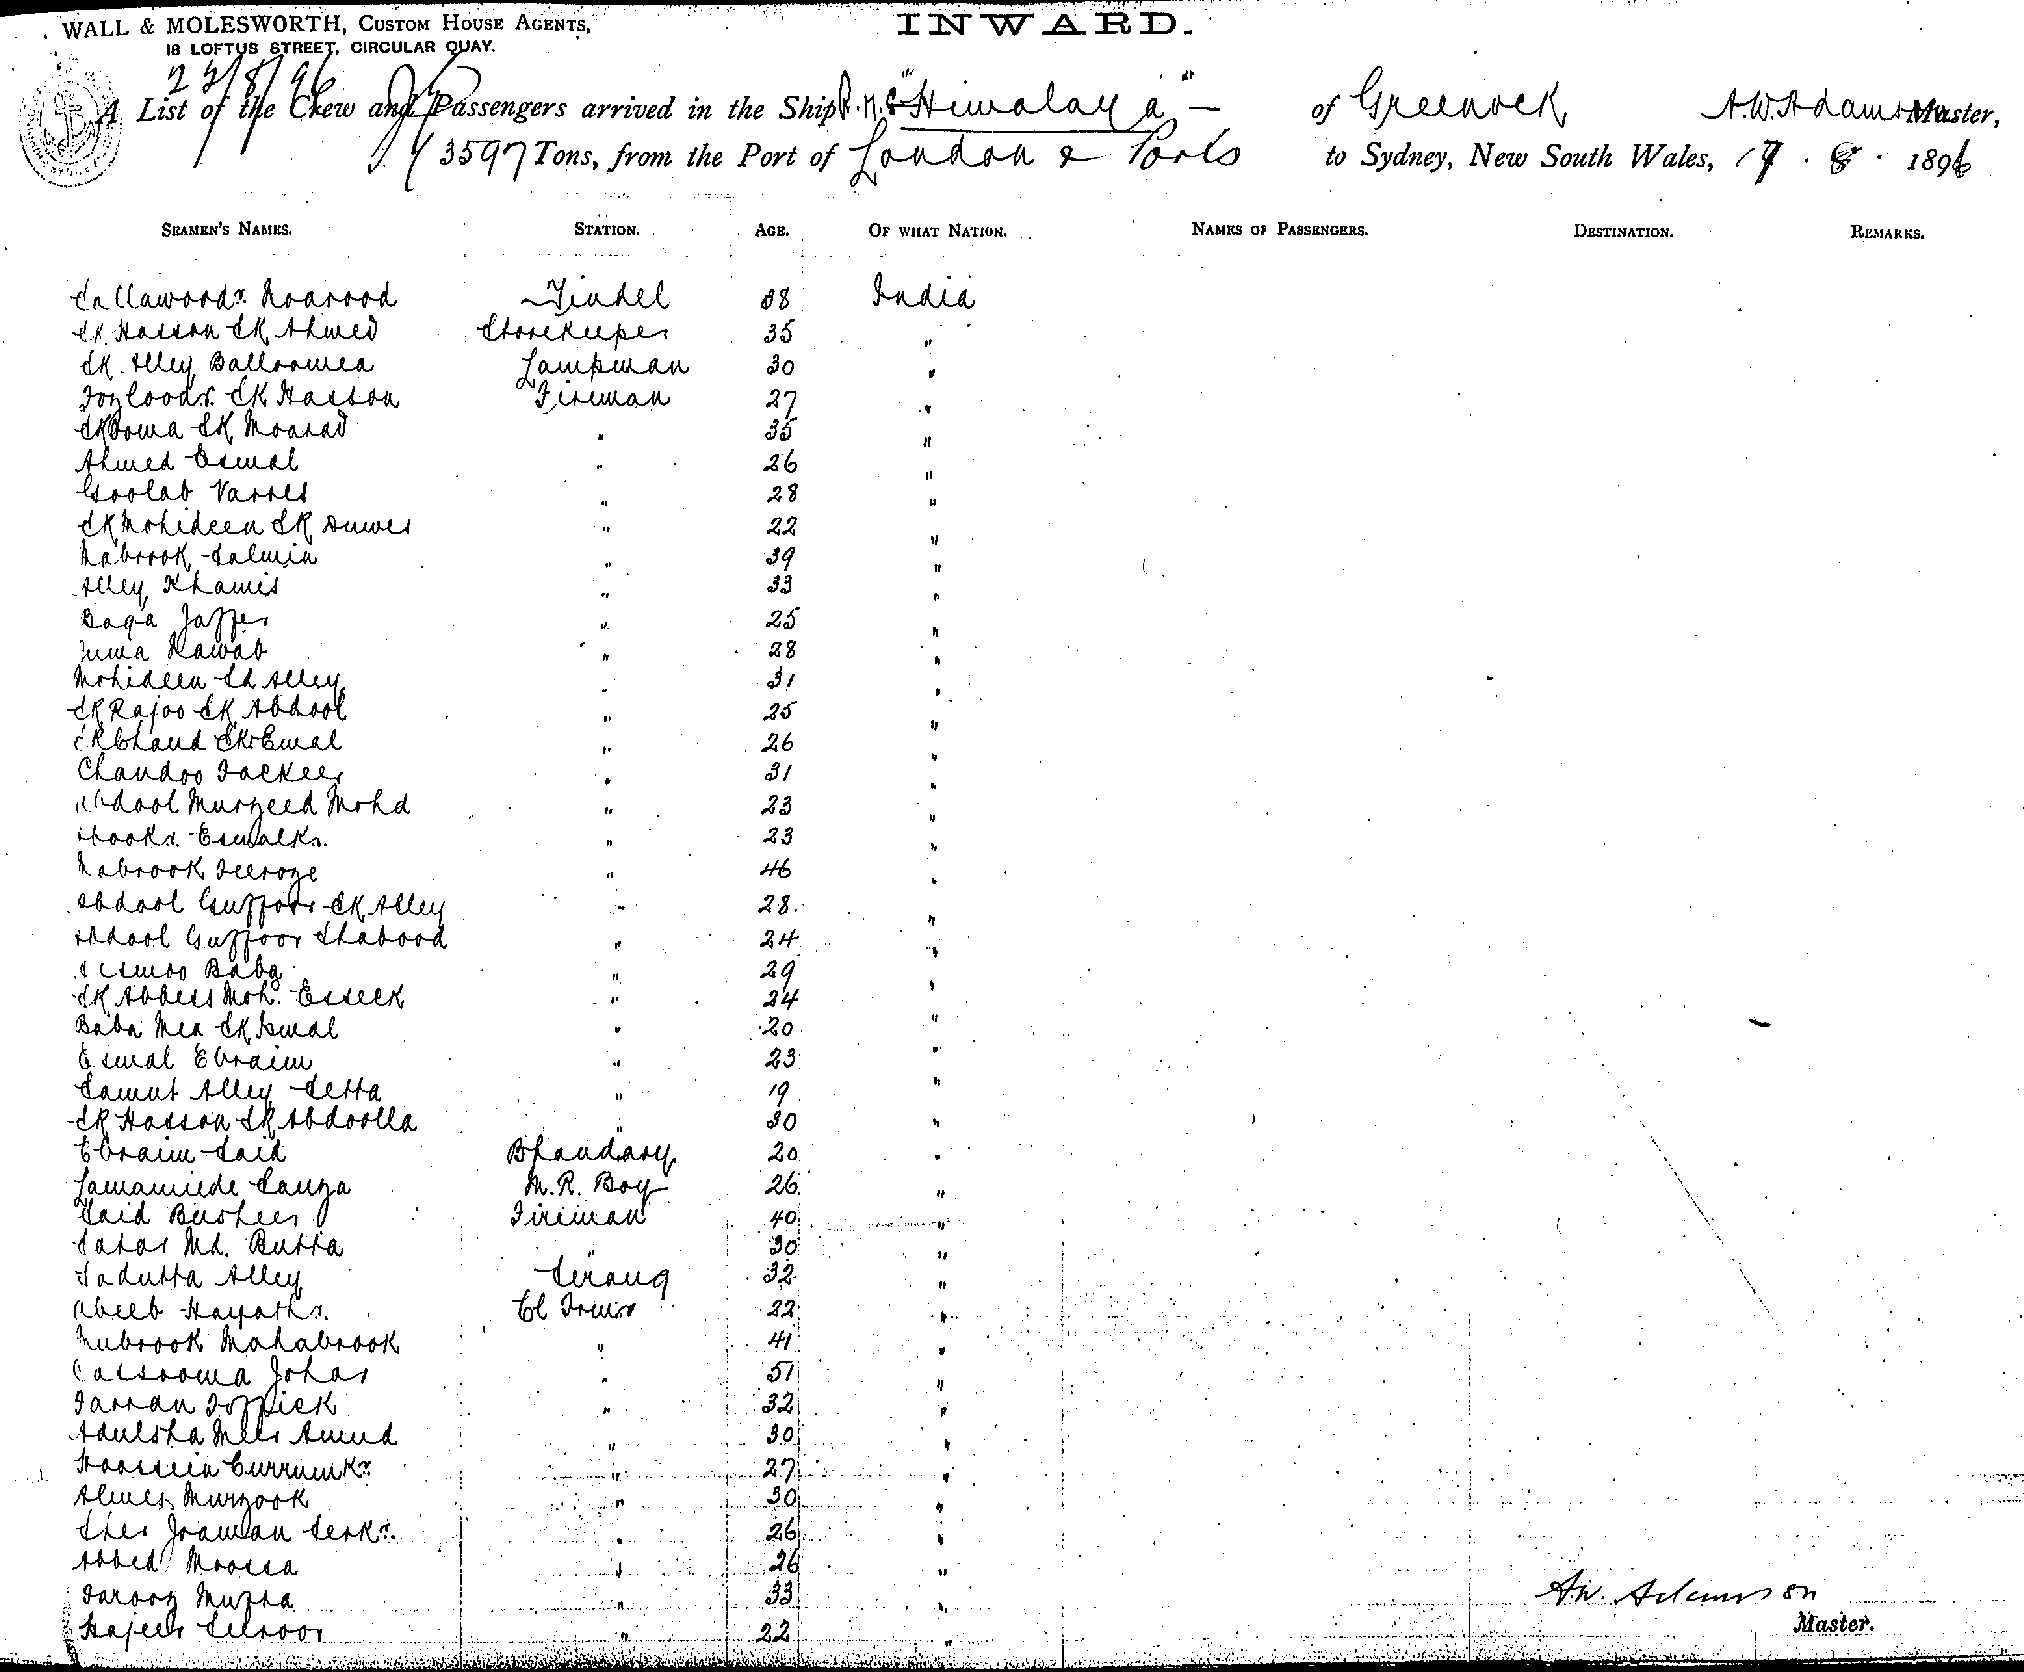 WALL & MOLESWORTH, CUSTOM HOUSE AGENTS,
18 LOFTUS STREET, CIRCULAR QUAY.
INWARD.
22/8/96
A List of the Crew and Passengers arrived in the Ship R.M.S "Himalaya" of Greenock A.W. Adamson Master,
3597 Tons, from the Port of London & Ports to Sydney, New South Wales, 17 . 8 . 1896
SEAMEN'S NAMES. STATION. AGE. OF WHAT NATION. NAMES OF PASSENGERS. DESTINATION. REMARKS.
Tindel 38 India
SK Hasson SK Ahmed Storekeeper 35 "
SK Alley Balloomea Lampman 30 "
SK Hasson Fireman 27 "
SK Doma SK Moarad " 35 "
Ahmed Esmal " 26 "
Goolab Varres " 28 "
SK Mohideen SK " 22 "
Mabrook Salmin " 39 "
Alley Khamis " 33 "
Baga Jaffer " 25 "
Juma Nawab " 28 "
Mohideen Sd Alley " 31 "
SK Rajoo SK Abdool " 25 "
SK Chand SK Emal " 26 "
Chandoo Fackeer " 31 "
Abdool Murzeed Mohd " 23 "
" 23 "
Mabrook Feeroze " 46 "
Abdool Guffoor SK Alley " 28 "
Abdool Guffoor Shabood " 24 "
Baba " 29 "
SK Abbess Moh. Esseek " 24 "
Baba Mea SK Ismal " 20 "
Esmal Ebraim " 23 "
Samut Alley Setta " 19 "
SK Hasson SK Abdoolla " 30 "
Ebraim Said Bhandary 20 "
Sauza M.R. Boy 26 "
Said Busheer Fireman 40 "
Md. Butta " 30 "
Sadutta Alley Serang 32 "
Abeeb 22 "
Mubrook Mahabrook " 41 "
Johar " 51 "
Farran Toffick " 32 "
Meer Amud " 30 "
Hoossein Currumkn " 27 "
Murzook " 30 "
Sher " 26 "
Abbed Moossa " 26 "
Farooz Mutta " 33 "
Hajeer Seeroor " 22 "
A.W. Adamson
Master.